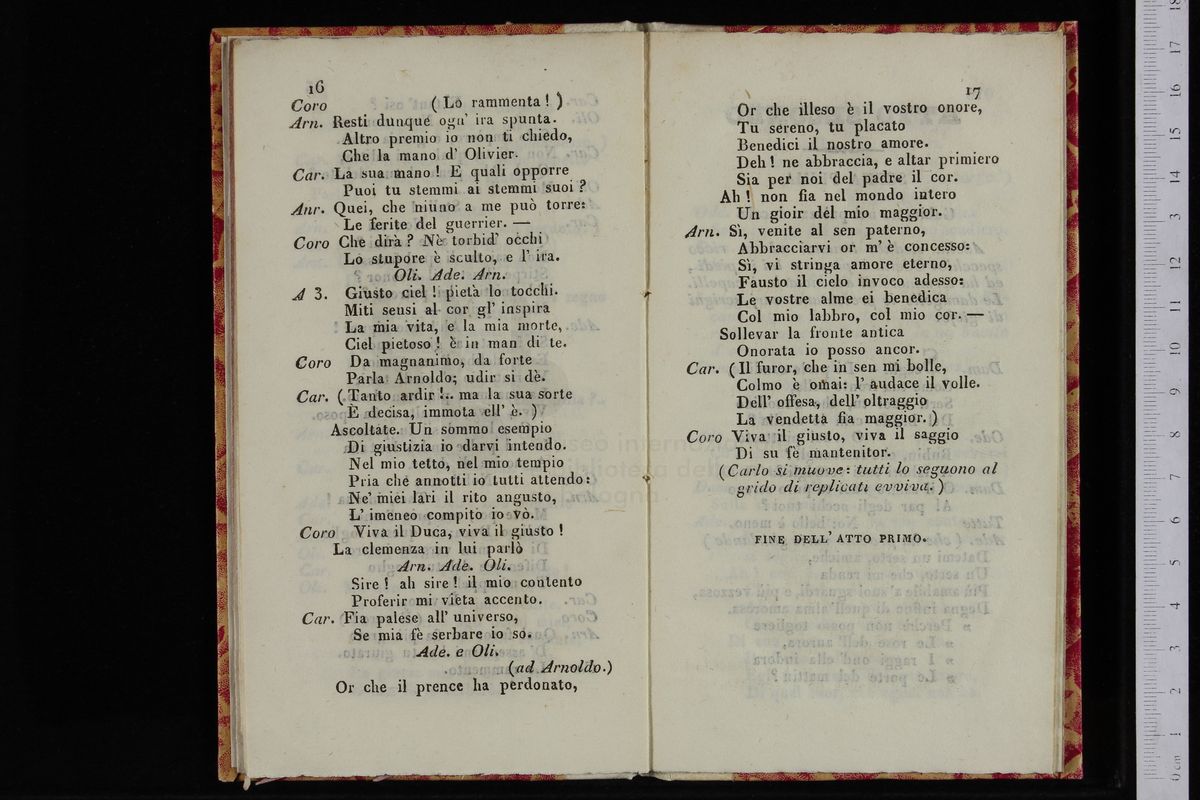 16
Coro (Lo rammenta!)
Arn. Resti dunque ogn' ira spunta.
Altro premio io non ti chiedo,
Che la mano d' Olivier.
Car. La sua mano! E quali opporre
Puoi tu stemmi ai stemmi suoi?
Anr. Quei, che niuno a me può torre:
Le ferite del guerrier. —
Coro Che dirà? Ne' torbid' occhi
Lo stupore è sculto, e l' ira.
Oli. Ade. Arn.
A 3. Giusto ciel! pietà lo tocchi.
Miti sensi al cor gl' inspira
La mia vita, e la mia morte,
Ciel pietoso! è in man di te.
Coro Da magnanimo, da forte
Parla Arnoldo; udir si dè.
Car. (Tanto ardir!.. ma la sua sorte
E decisa, immota ell' è.)
Ascoltate. Un sommo esempio
Di giustizia io darvi intendo.
Nel mio tetto, nel mio tempio
Pria che annotti io tutti attendo:
Ne' miei lari il rito angusto,
L' imeneo compito io vò.
Coro Viva il Duca, viva il giusto!
La clemenza in lui parlò
Arn. Ade. Oli.
Sire! ah sire! il mio contento
Proferir mi vieta accento.
Car. Fia palese all' universo,
Se mia fè serbare io so.
Ade. e Oli.
(ad Arnoldo.)
Or che il prence ha perdonato,
17
Or che illeso è il vostro onore,
Tu sereno, tu placato
Benedici il nostro amore.
Deh! ne abbraccia, e altar primiero
Sia per noi del padre il cor.
Ah! non fia nel mondo intero
Un gioir del mio maggior.
Arn. Sì, venite al sen paterno,
Abbracciarvi or m' è concesso:
Sì, vi stringa amore eterno,
Fausto il cielo invoco adesso:
Le vostre alme ei benedica
Col mio labbro, col mio cor. —
Sollevar la fronte antica
Onorata io posso ancor.
Car. (Il furor, che in sen mi bolle,
Colmo è omai: l' audace il volle.
Dell' offesa, dell' oltraggio
La vendetta fia maggior.)
Coro Viva il giusto, viva il saggio
Di su fè mantenitor.
(Carlo si muove: tutti lo seguono al
grido di replicati evviva.)
FINE DELL' ATTO PRIMO.